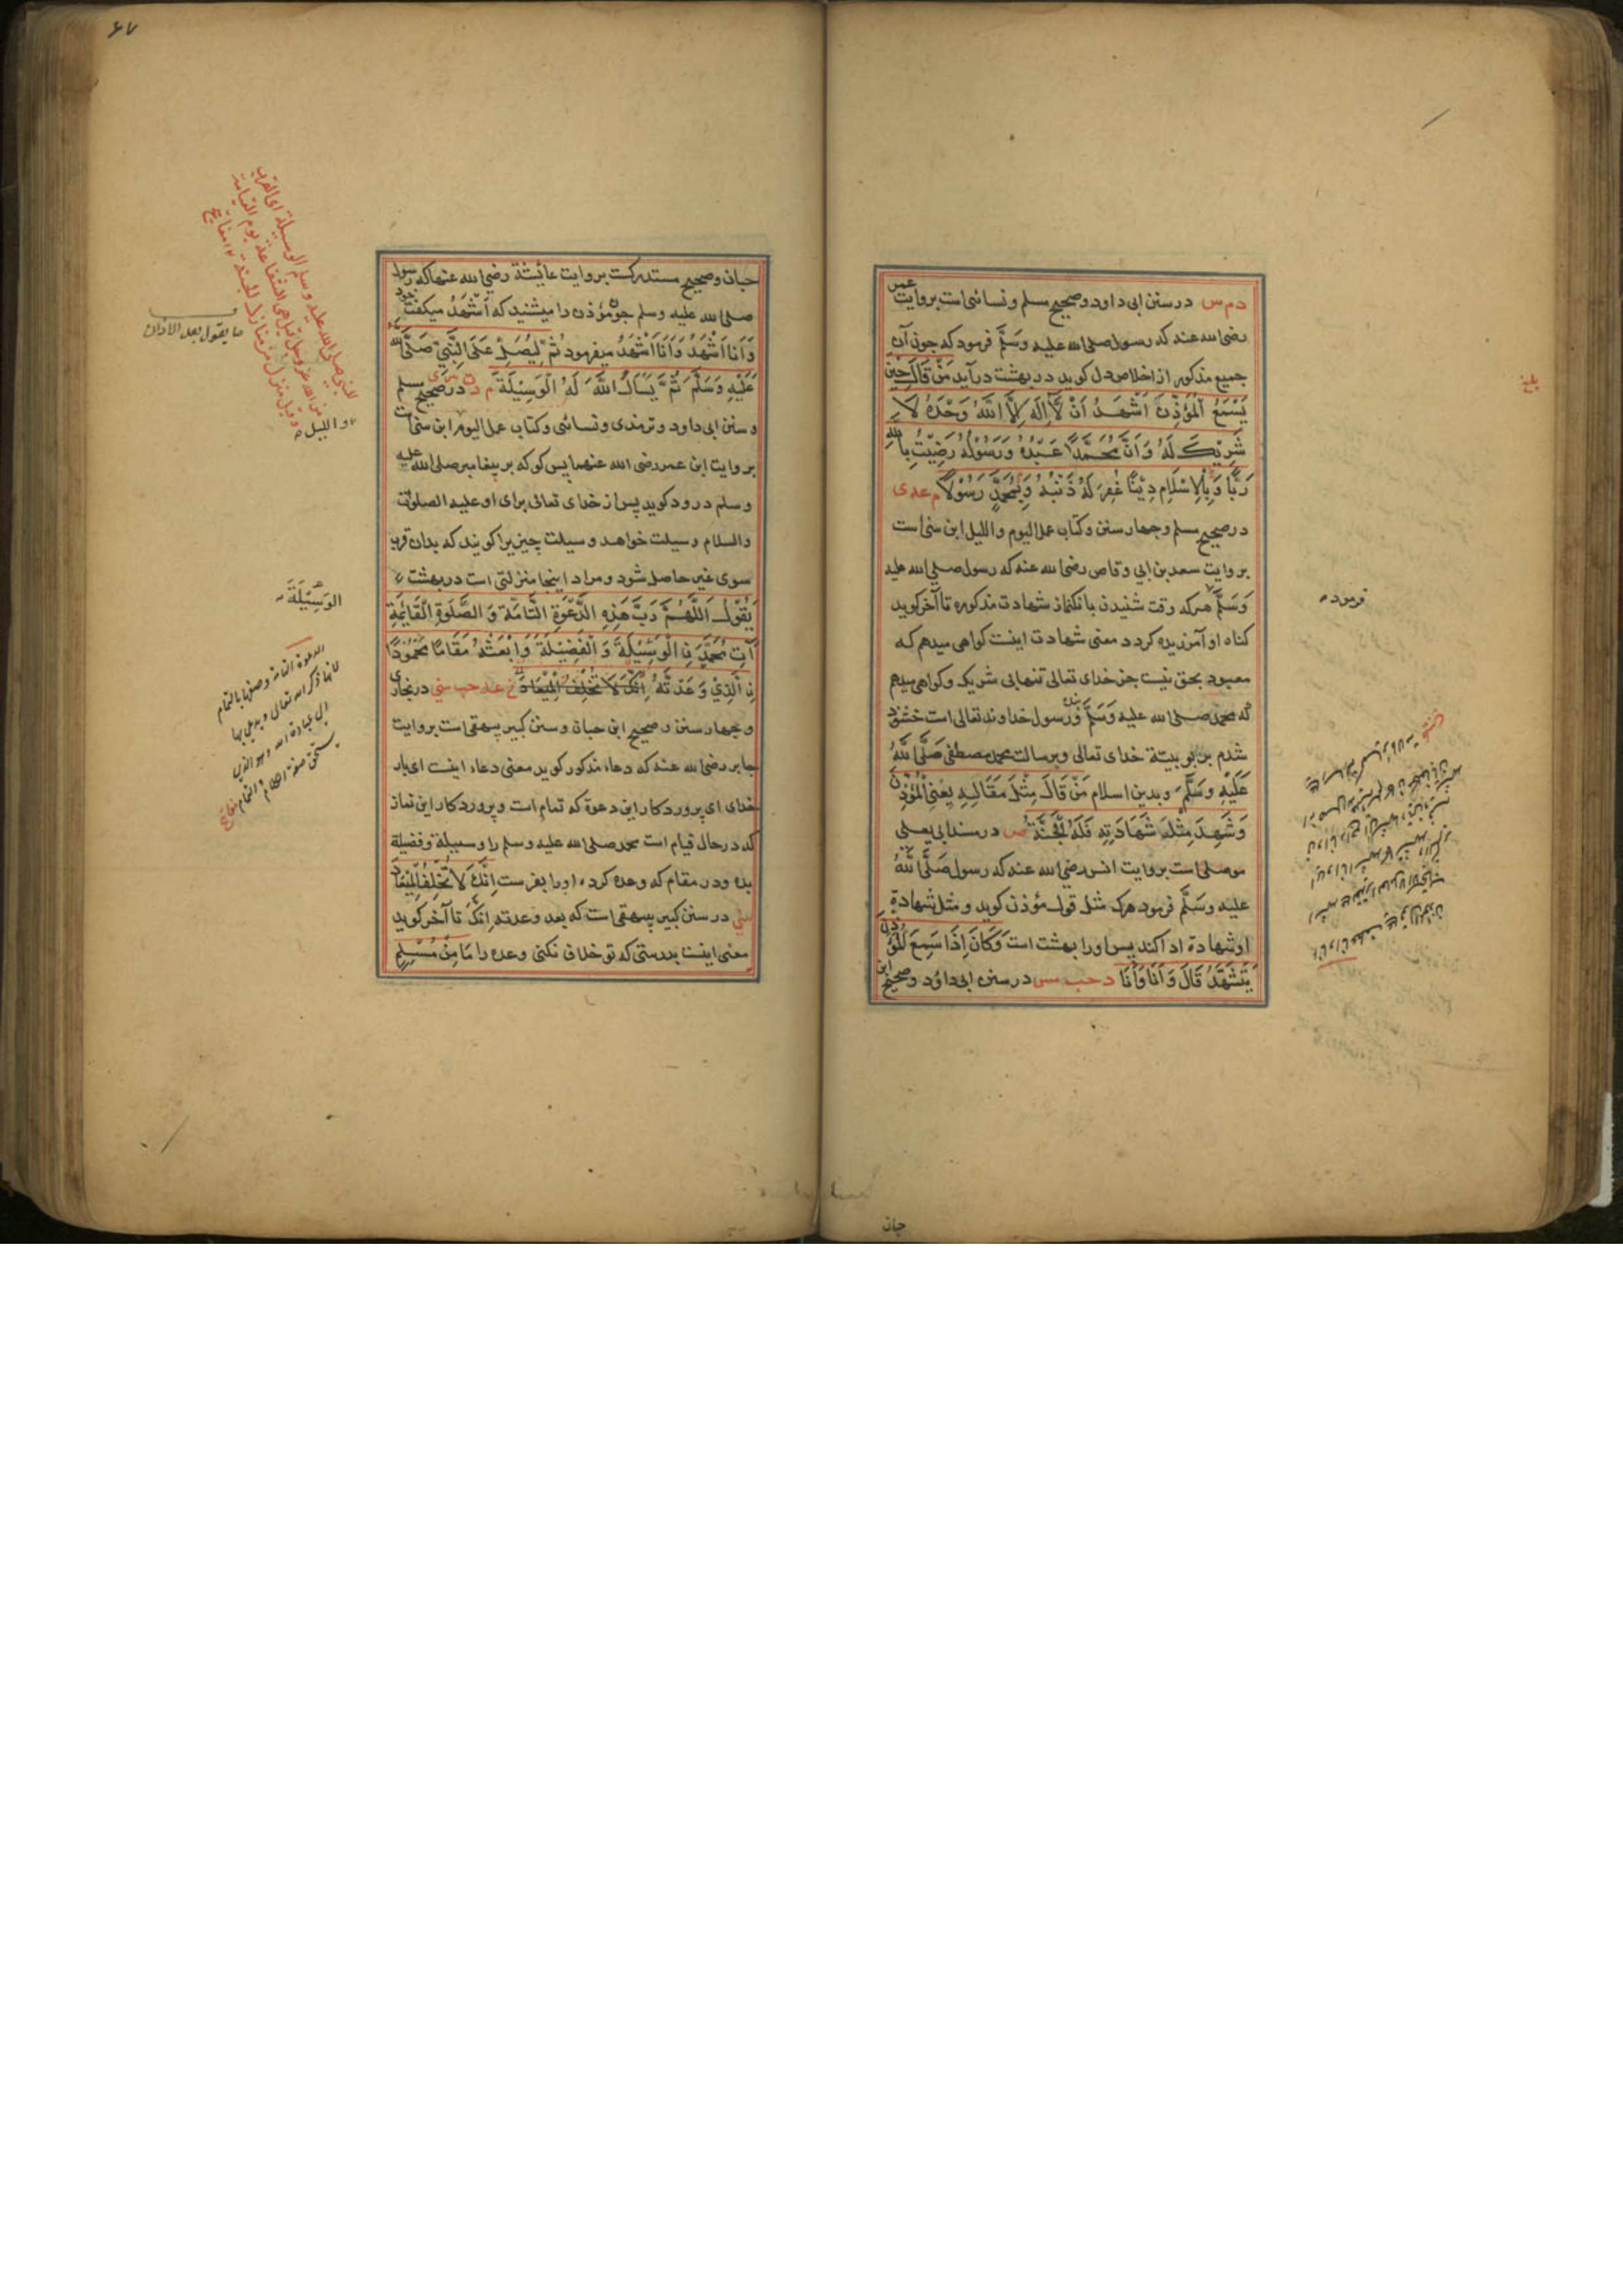 دم س در سنن ابی داود و صحیح مسلم و نسائی است بروایت عمر
رضی الله عنه که رسول صلی الله علیه وسَلَّم فرمود که چون آن
جمیع مذکور از اخلاص دل کوید در بهشت درآید مَنْ قَالَ حِیْنَ
یَسْمَعُ اَلْمُؤَذِّنَ اَشْهَدُ اَنْ لَّا اِلٰهَ اِلَّا اللّٰهُ وَحْدَهُ لَا
شَرِیْکَ لَهُ وَاَنَّ مُحَمَّدًا عَبْدُهُ وَرَسُوْلُهُ رَضِیْتُ بِاللّٰهِ
رَبًّا وَبِالْاِسْلَامِ دِیْنًا غُفِرَ لَهُ ذَنْبُهُ وَبِمُحَمَّدٍ رَسُوْلًا م عه ی
در صحیح مسلم و چهار سنن و کتاب عمل الیوم واللیل ابن سنی است
بروایت سعد بن ابی وقاص رضی الله عنه که رسول صلی الله علیه
وَسَلَّم هرکه وقت شنیدن بانکنماز شهادت مذکوره تا آخر کوید
کناه او آمرزیده کردد معنی شهادت اینست کواهی میدهم که
معبود بحق نیست جز خدای تعالی تنهابی شریک و کواهی میدهم
که محمد صلی الله علیه وَسَلَّم بنده وَرسول خداوند تعالی است خشنود
شدم بربوبیتة خدای تعالی و برسالت محمد مصطفی صَلَّی اللّٰهُ
عَلَیْهِ وَسَلَّم وبدین اسلام مَنْ قَالَ مِثْلَ مَقَالِهِ یَعْنِی الْمُؤَذِّنَ
وَشَهِدَ مِثْلَ شَهَادَتِهِ فَلَهُ الْجَنَّةُ ص در مسند ابی یعلی
موصلی است بروایت انس رضی الله عنه که رسول صَلَّی اللّٰهُ
علیه وسَلَّم فرمود هرکه مثل قول مؤذن کوید و مثل شهادة
او شهادة ادا کند پس او را بهشت است وَکَانَ اِذَا سَمِعَ الْمُؤَذِّنَ
یَتَشَهَّدُ قَالَ وَاَنَا وَاَنَا د حب مس در سنن ابی داوُد و صحیح ابن
فرموده
حبان
۶۷
حبان و صحیح مستدرکست بروایت عائیشة رضی الله عنها که رسول
صلی الله علیه وسلم چون مؤذن را میشنید که اَشْهَدُ میکفت خود
وَاَنَا اَشْهَدُ وَاَنَا اَشْهَدُ میفرمود ثُمَّ لِیُصَلِّ عَلَی النَّبِیِّ صَلَّی اللّٰهُ
عَلَیْهِ وَسَلَّمَ ثُمَّ یَسْاَلُ اللّٰهَ لَهُ الْوَسِیْلَةَ م د ت س ی در صحیح مسلم
و سنن ابی داود و ترمذی و نسائی و کتاب عمل الیوم ابن سنی است
بروایت ابن عمر رضی الله عنهما پس کو که بر پیغامبر صلی الله علیه
وسلم درود کوید پس از خدای تعالی برای او علیه الصلوة
والسلام وسیلت خواهد و وسیلت چیزیرا کویند که بدان قرب
سوی غیر حاصل شود و مراد اینجا منزلتی است در بهشت
یَقُوْلُ اَللّٰهُمَّ رَبَّ هٰذِهِ الدَّعْوَةِ التَّامَّةِ وَ الصَّلٰوةِ الْقَائِمَةِ
آتِ مُحَمَّدَ نِ الْوَسِیْلَةَ وَ الْفَضِیْلَةَ وَابْعَثْهُ مَقَامًا مَحْمُوْدًا
نِ الَّذِیْ وَعَدْتَّهُ اِنَّکَ لَا تُخْلِفُ الْمِیْعَادَ خ عه حب سنی در بخاری
و چهار سنن و صحیح ابن حبان و سنن کبیر بیهقی است بروایت
جابر رضی الله عنه که دعاء مذکور کوید معنی دعاء اینست ای بار
خدای ای پروردکار این دعوة که تمام است و پروردکار این نماز
که در حال قیام است محمد صلی الله علیه وسلم را وسیلة و فضیلة
بده ودر مقام که وعده کرده او را بفرست اِنَّکَ لَا تُخْلِفُ الْمِیْعَادَ
سنی در سنن کبیر بیهقی است که بعد وعدته اِنَّکَ تا آخر کوید
معنی اینست بدرستی که تو خلاف نکنی وعده را مَا مِنْ مُسْلِمٍ
ما یقول بعد الاذان
واللیل
الوَسِیْلَةَ